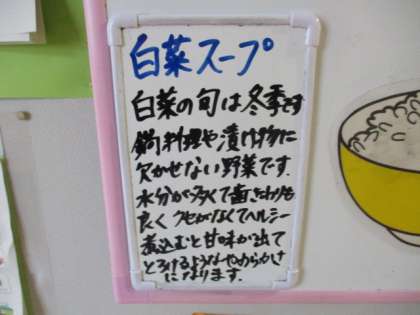 白菜スープ
白菜の旬は冬季です
鍋料理や漬け物に
欠かせない野菜です.
水分が多くて歯ざわりも
良くクセがなくてヘルシー
煮込むと甘味が出て
とろけるようなやわらかさ
になります.